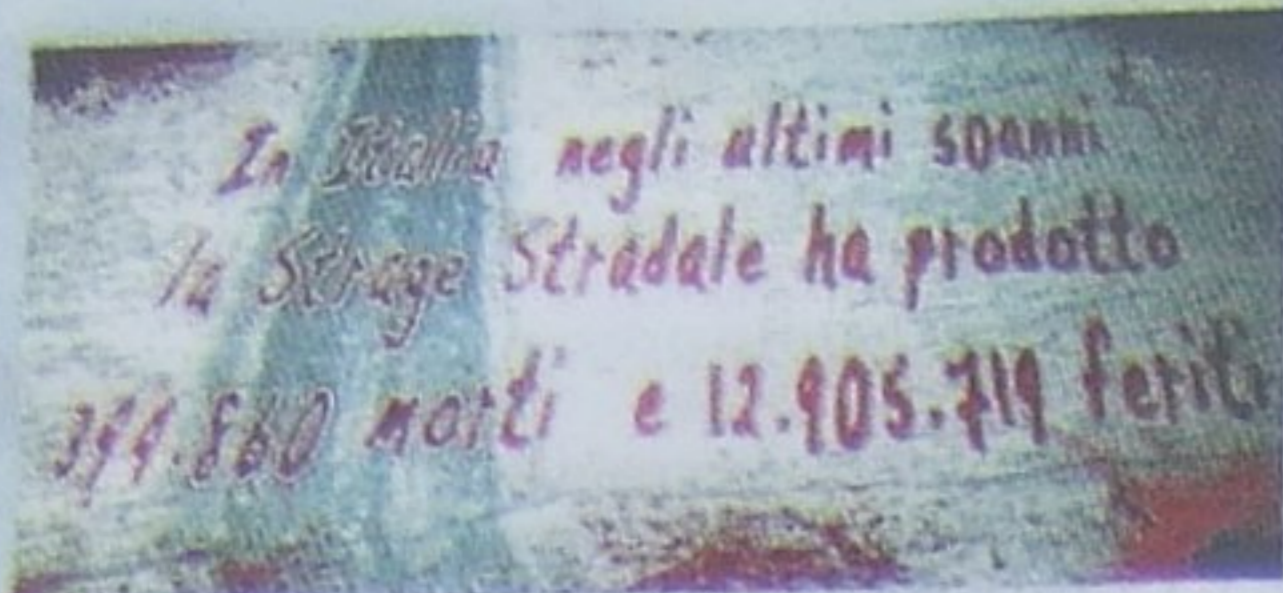 In Italia negli ultimi 50 anni
la Strage Stradale ha prodotto
399.860 morti e 12.905.719 feriti